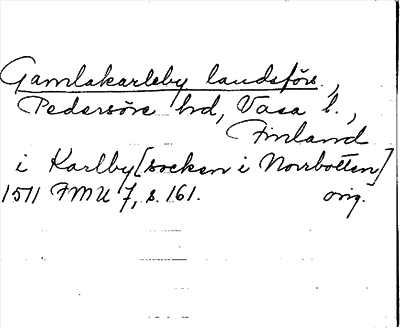 Gamlakarleby landsförs.,
Pedersöre hd, Vasa l.,
Finland
i Karlby [socken i Norrbotten]
1511 FMU 7, s. 161. orig.